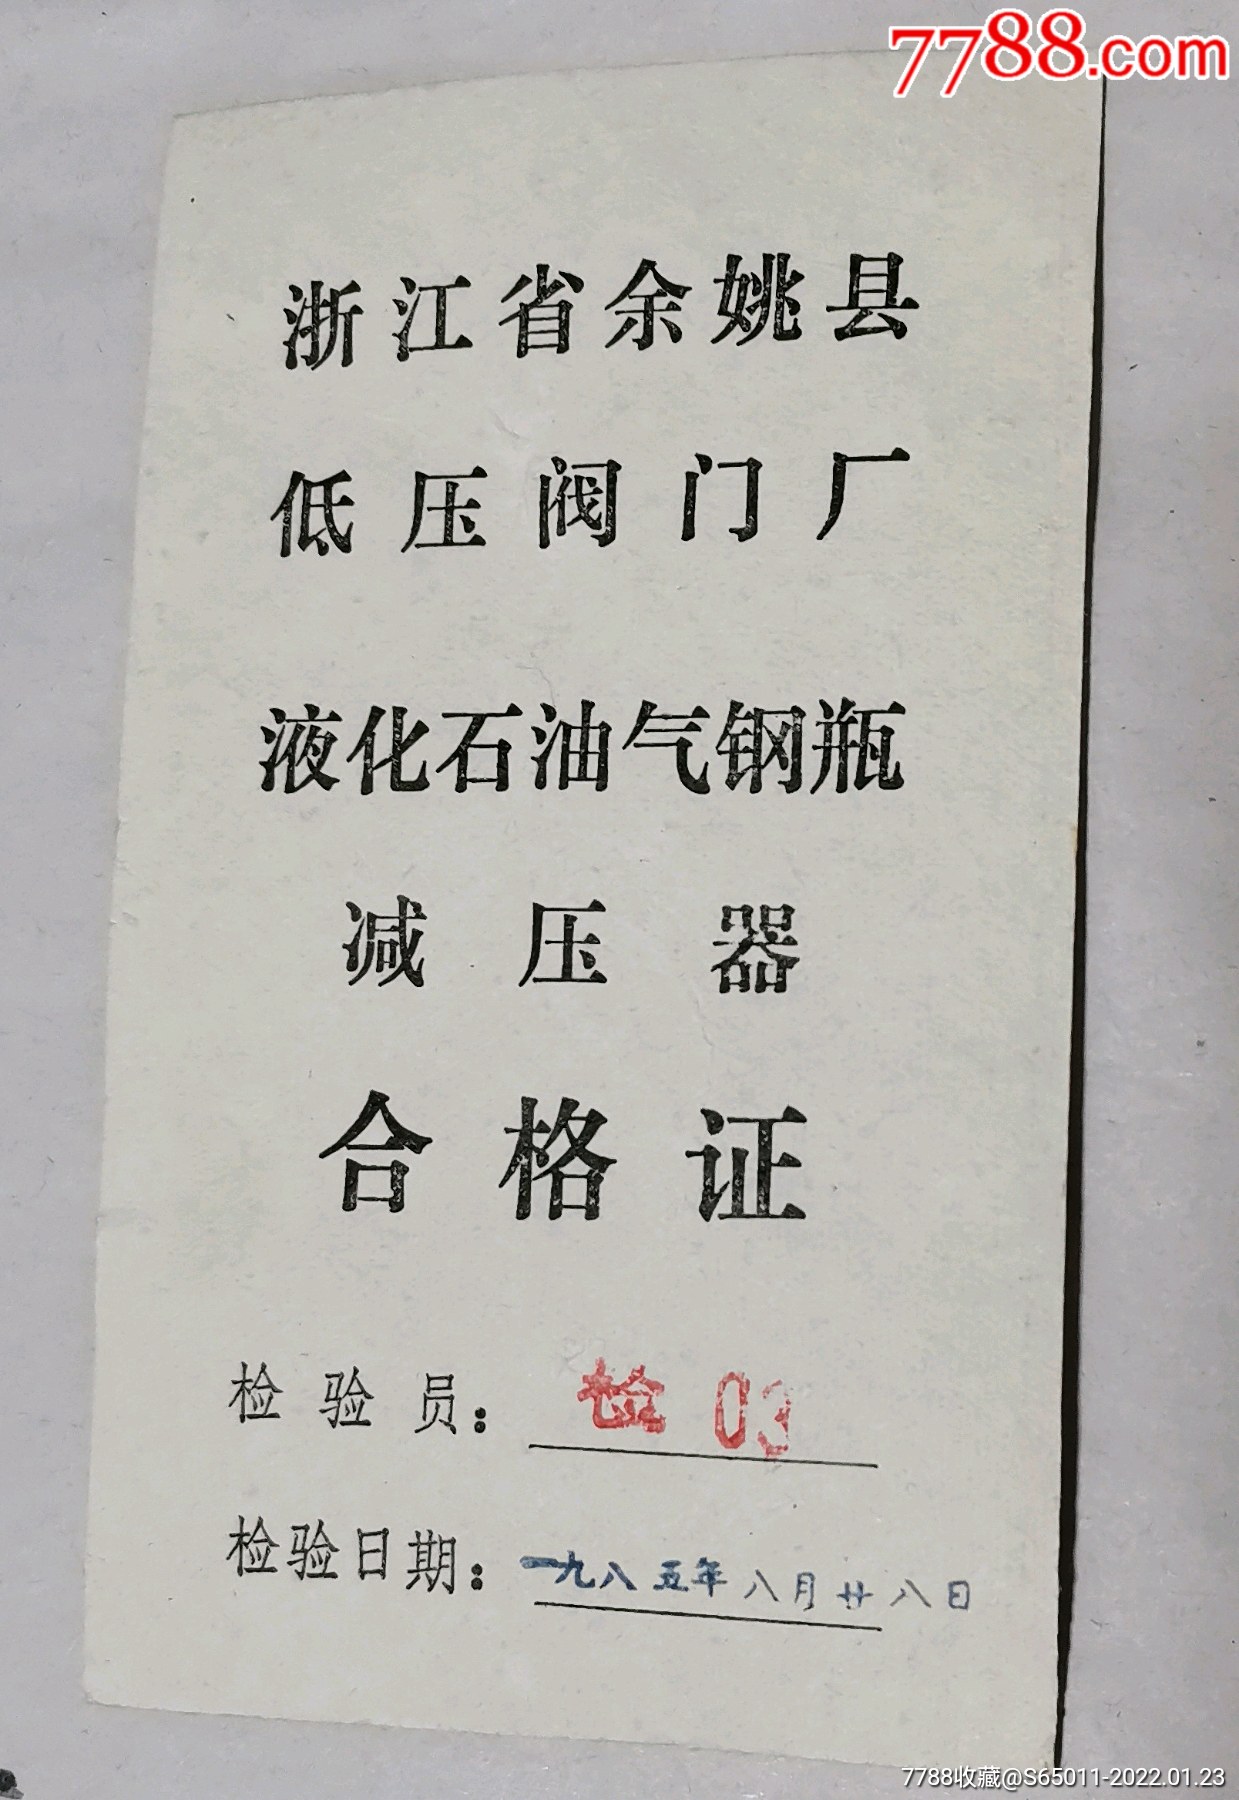 7788.com
浙江省余姚县
低压阀门厂
液化石油气钢瓶
减压器
合格证
检验员：检 03
检验日期：一九八五年八月廿八日
7788收藏@S65011-2022.01.23